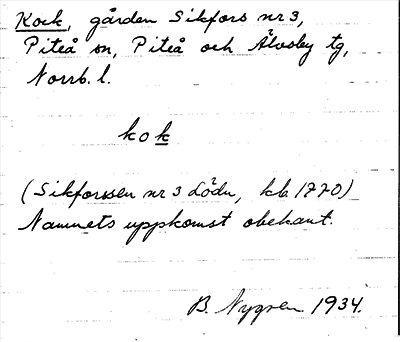 Kock, gården Sikfors nr 3,
Piteå sn, Piteå och Älvsby tg,
Norrb. l.
kok
(Sikforssen nr 3 Lödn, kb. 1770)
Namnets uppkomst obekant.
B. Nygren 1934.